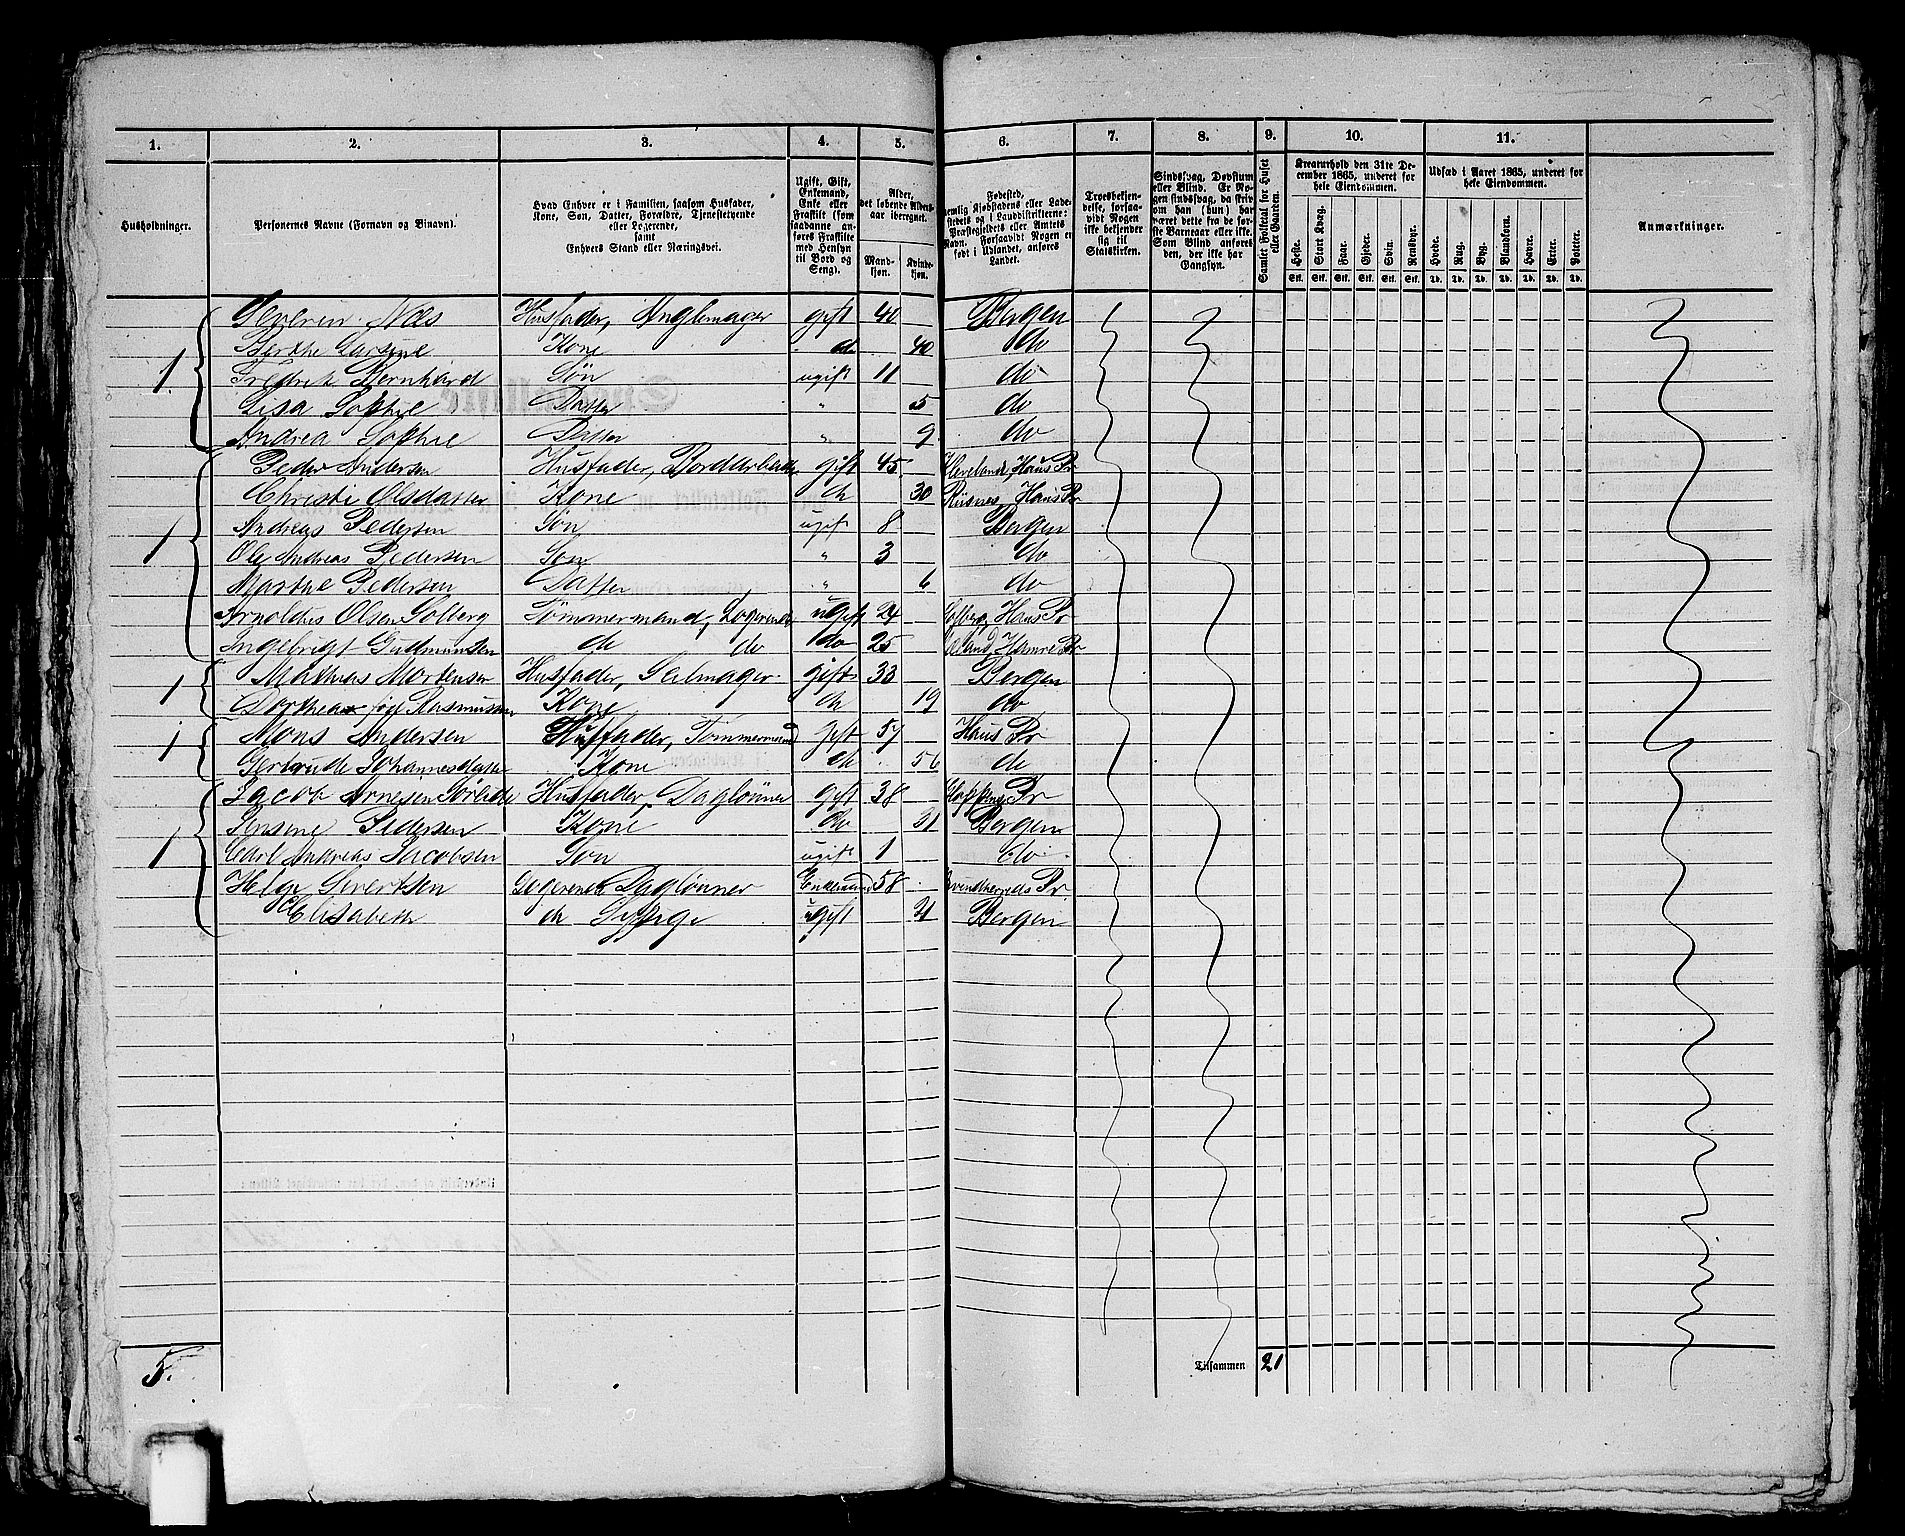 1. 2. 3. 4. 5. 6. 7. 8. 9. 10. 11.
Husholdninger.
Personernes Navne (Fornavn og Binavn).
Hvad Enhver er i Familien, saasom Husfader,
Kone, Søn, Datter, Forældre, Tjenestetyende
eller Logerende,
samt
Enhvers Stand eller Næringsvei.
Ugift, Gift,
Enkemand,
Enke eller
Fraskilt (som
saadanne an-
føres Fraskilte
med Hensyn
til Bord og
Seng).
Alder,
det løbende Alders-
aar iberegnet.
Mand-
kjøn.
Kvinde-
kjøn.
Fødested,
nemlig Kjøbstadens eller Lade-
stedets og i Landdistrikterne:
Præstegjeldets eller Amtets
Navn. Forsaavidt Nogen er
født i Udlandet, anføres
Landet.
Troesbekjen-
delse, forsaa-
vidt Nogen
ikke bekjender
sig til
Statskirken.
Sindssvag, Døvstum
eller Blind. Er No-
gen sindssvag, da skriv
om han (hun) har
været dette fra de før-
ste Barneaar eller ikke.
Som Blind anføres
den, der ikke har
Gangsyn.
Samlet Folketal for Huset
eller Gaarden.
Kreaturhold den 31te De-
cember 1865, underet for
hele Eiendommen.
Heste. Stort Kvæg. Faar. Gjeder. Svin. Rensdyr.
Stk. Stk. Stk. Stk. Stk. Stk.
Udsæd i Aaret 1865, underet for
hele Eiendommen.
Hvede. Rug. Byg. Blandkorn. Havre. Erter. Poteter.
Td. Td. Td. Td. Td. Td. Td.
Anmærkninger.
Severin Næs Husfader, gift 40 Bergen
Berthe Kone do 40 do
1 Fredrik Bernhard Søn ugift 11 do
Lisa Sophie Datter " 5 do
Andrea Sophie Datter " 9 do
Peder Andersen Husfader, Bordarbeider gift 45 Haus Pr
Christi Olsdatter Kone do 30 Haus Pr
Andreas Pedersen Søn ugift 8 Bergen
1 Ole Andreas Pedersen Søn " 3 do
Marthe Pedersen Datter " 6 do
Arnoldus Olsen Solberg Tømmermand, Logerende ugift 24 Haus Pr
Ingebrigt Gudmunsen do do do 25 Hamre Pr
1 Mathias Mortensen Husfader, Seilmager gift 33 Bergen
Dorthea fød Rasmussen Kone do 19 do
1 Mons Andersen Husfader, Tømmermand gift 57 Haus Pr
Gertrude Johannesdatter Kone do 56 do
Jacob Arnesen Husfader, Daglønner gift 38 Pr
Jensine Pedersen Kone do 31 Bergen
1 Carl Andreas Jacobsen Søn ugift 1 do
Helge Sivertsen Logerende Daglønner Enkemand 58 Pr
Elisabeth do ugift Bergen
5. Tilsammen 21